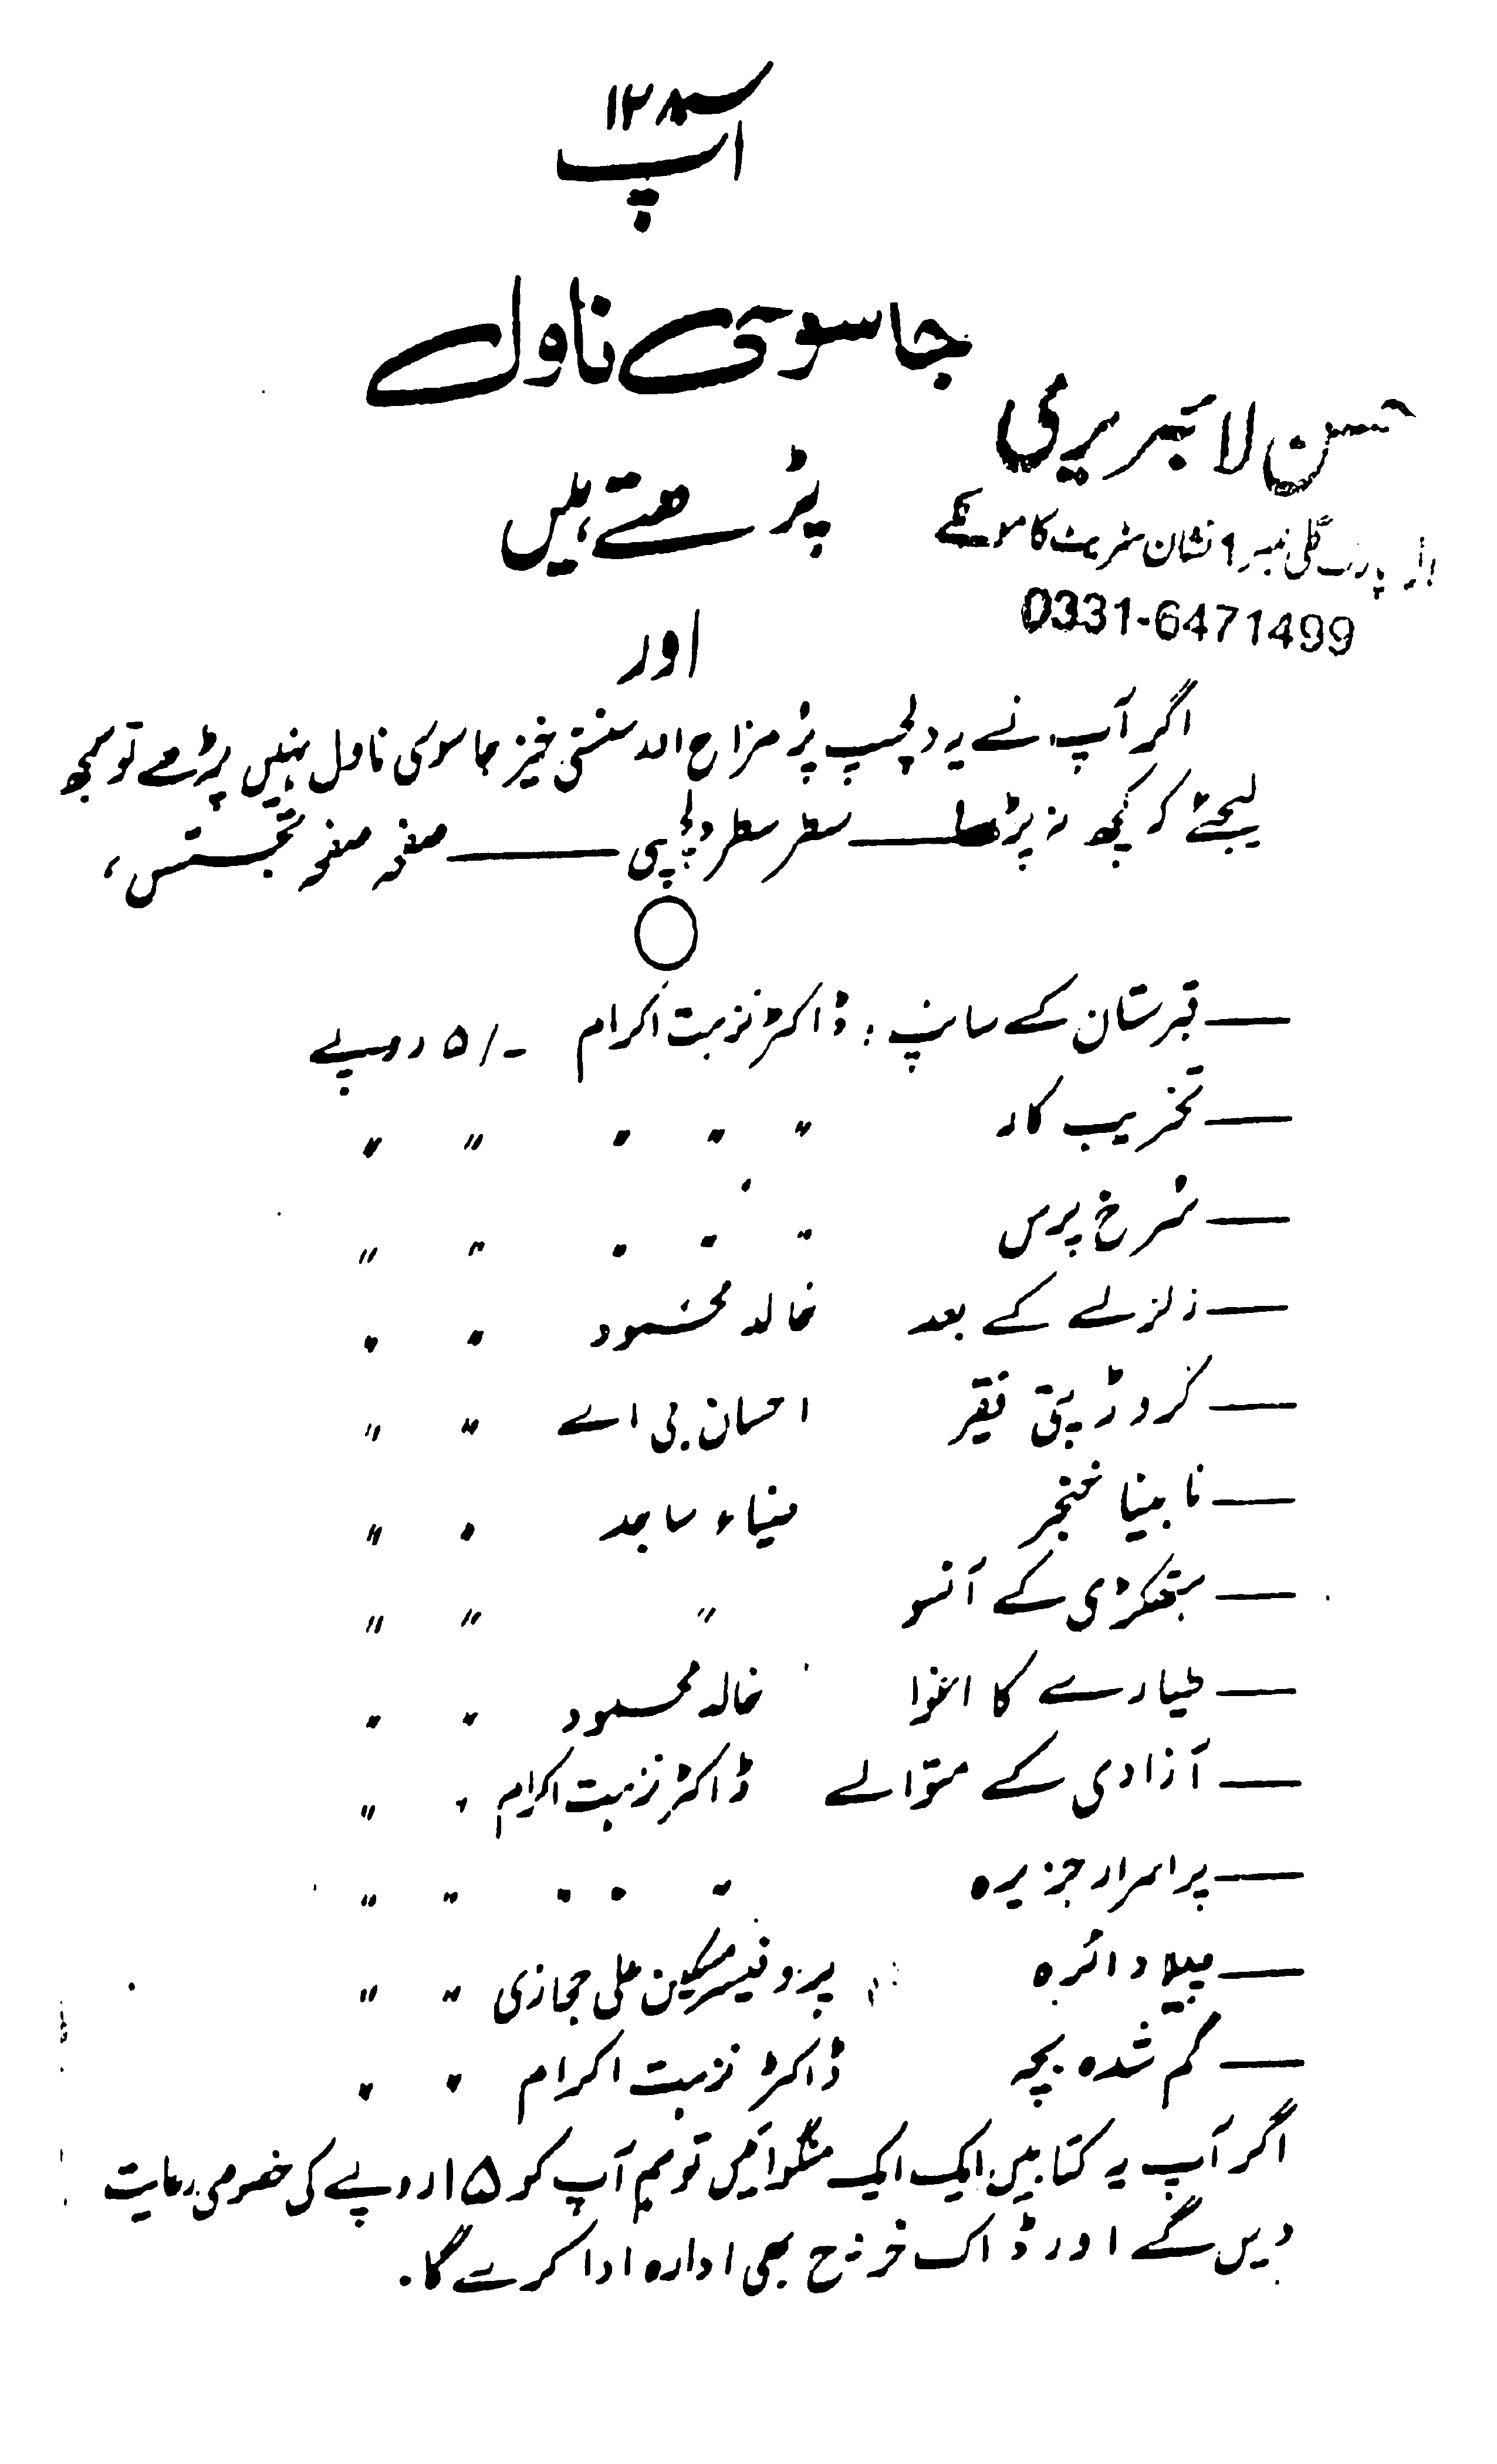 آپ
جاسوسی ناول
حسن لائبریری
پڑھتے ہیں
گلی نمبر 1 نشان سٹریٹ کامونکے
0331-6471499
اور
اگر آپ نے یہ دلچسپ پُرمزاح اور سنسنی خیز جاسوسی ناول نہیں پڑھے تو سمجھ
لیجئے کہ کچھ نہ پڑھا — سطر سطر دلچسپی — صفحہ صفحہ تجسس،
— قبرستان کے سانپ : ڈاکٹر نزہت اکرام ۵/- روپے
— تخریب کار " " " " "
— سرخ پرس " " " " "
— زلزلے کے بعد خالد محمود " "
— کروڑ پتی فقیر احسان بی اے " "
— نابینا خنجر ضیاء ساجد " "
— ہتھکڑی کے آنسو " " "
— طیارے کا اغوا خالد محمود " "
— آزادی کے متوالے ڈاکٹر نزہت اکرام " "
— پراسرار جزیرہ " " " " "
— پیلا دائرہ پروفیسر مسکین علی حجازی " "
— گم شدہ بچہ ڈاکٹر نزہت اکرام " "
اگر آپ یہ کتابیں ایک ایک منگوائیں تو ہم آپ کو ۱۵ روپے کی خصوصی رعایت
دیں گے اور ڈاک خرچ بھی ادارہ ادا کرے گا۔